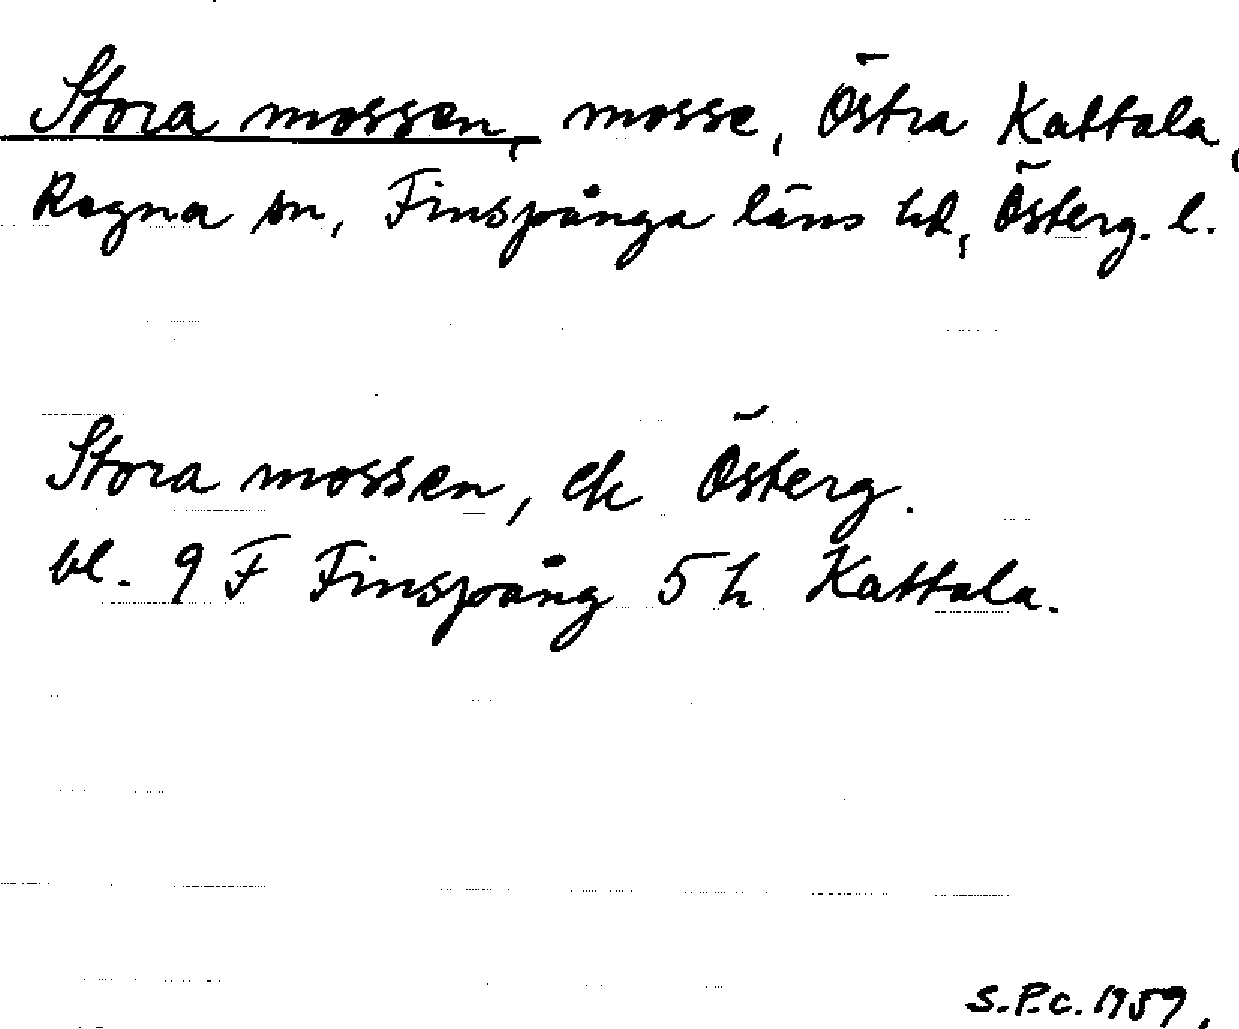 Stora mossen, mosse, Östra Kattala,
Regna sn, Finspånga läns hd, Österg. l.
Stora mossen, ek Österg.
bl. 9 F Finspång 5 h Kattala.
S.P.C. 1959.